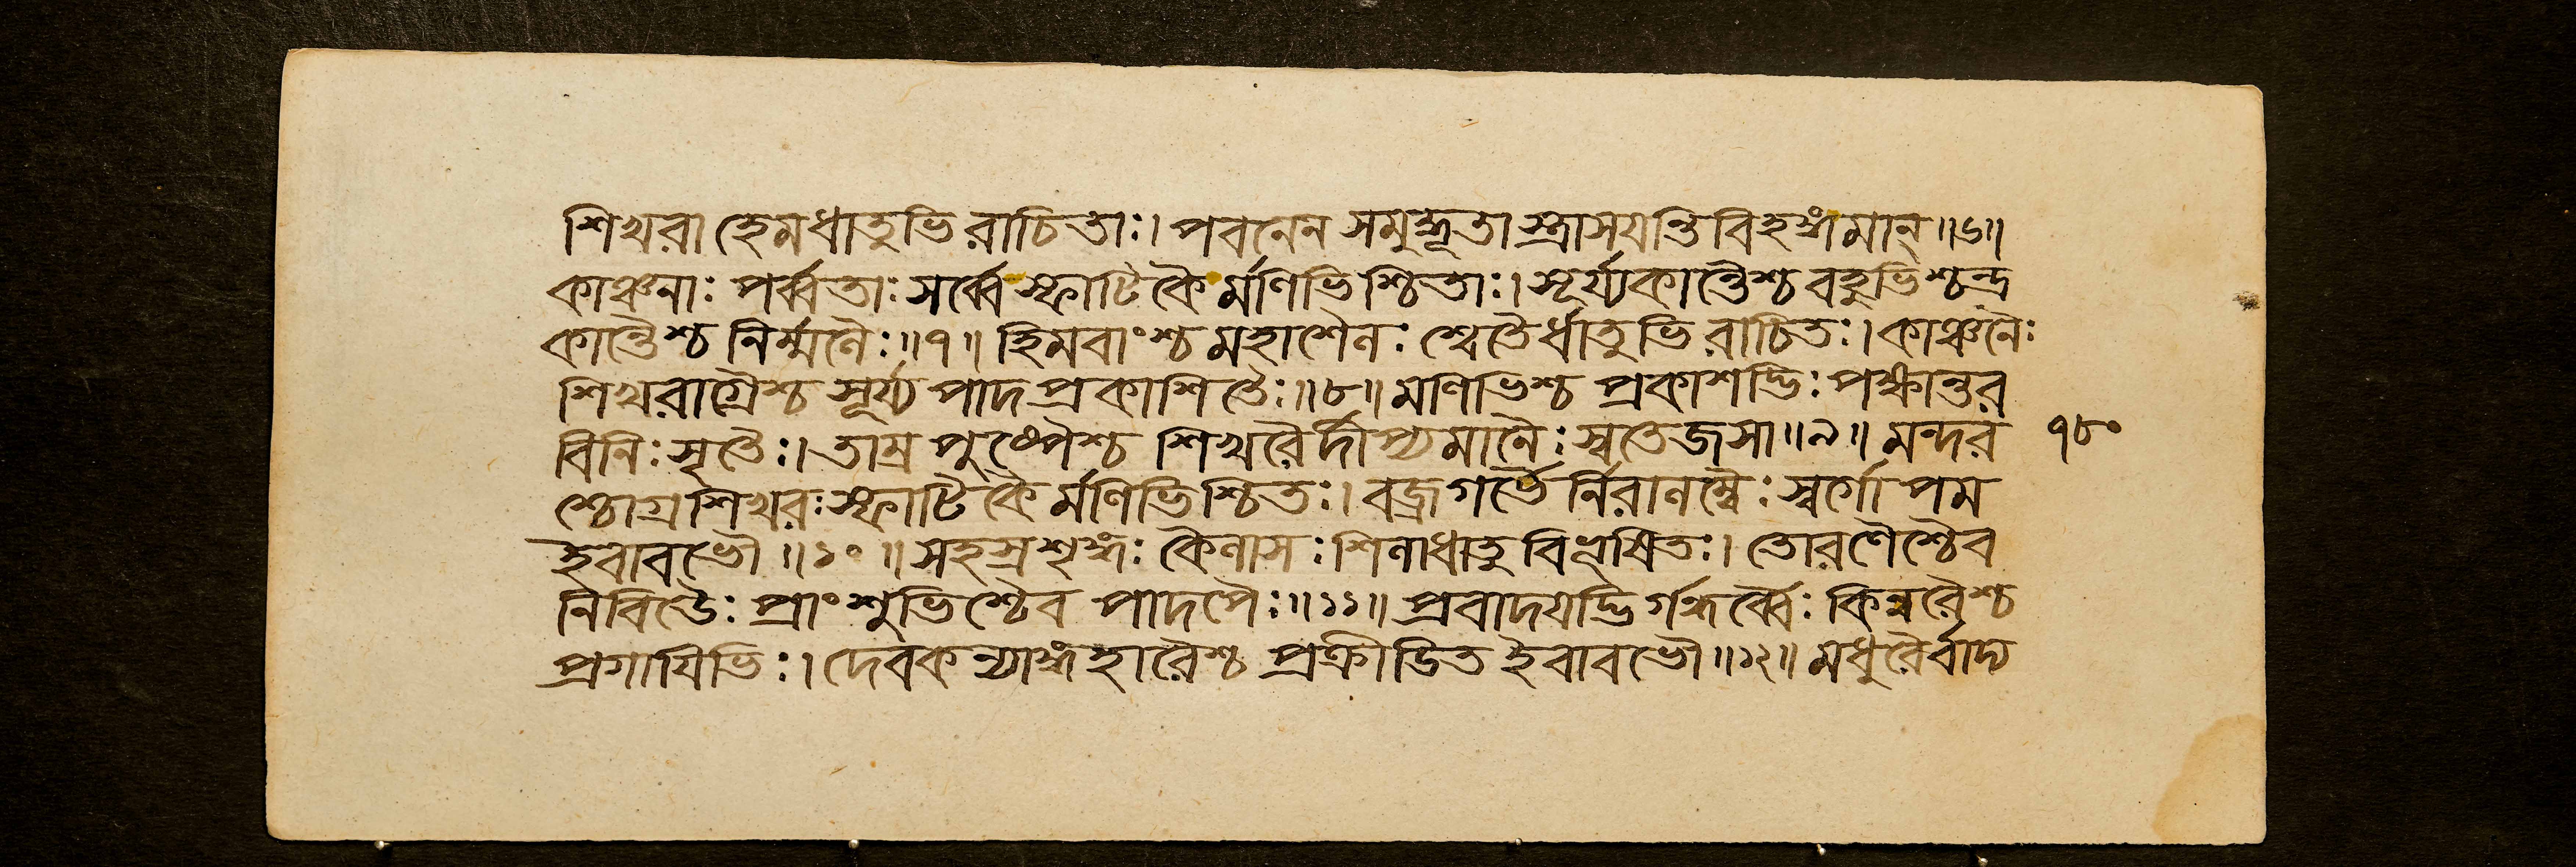 শিখরা হেমধাতুভিরাচিতাঃ। পবনেন সমুদ্ধূতা স্ত্রাসয়ন্তি বিহঙ্গমান্॥৬॥
কাঞ্চনাঃ পর্ব্বতাঃ সর্ব্বে স্ফাটিকৈর্মণিভিশ্চিতাঃ। সূর্য্যকান্তৈশ্চ বহুভিশ্চন্দ্র
কান্তৈশ্চ নির্ম্মলৈঃ॥৭॥ হিমবাংশ্চ মহাশৈলঃ শ্বেতৈর্ধাতুভিরাচিতঃ। কাঞ্চনৈঃ
শিখরাগ্রৈশ্চ সূর্য্যপাদপ্রকাশিতৈঃ॥৮॥ মণিভিশ্চ প্রকাশদ্ভিঃ পক্ষান্তর
বিনিঃসৃতৈঃ। তাম্রপুষ্পৈশ্চ শিখরৈর্দীপ্যমানৈঃ স্বতেজসা॥৯॥ মন্দর ৭৮০
শ্চোগ্রশিখরঃ স্ফাটিকৈর্মণিভিশ্চিতঃ। বজ্রগর্ভৈর্নিরালম্বৈঃ স্বর্গোপম
ইবাবভৌ॥১০॥ সহস্রশৃঙ্গঃ কৈলাসঃ শিলাধাতুবিভূষিতঃ। তোরণৈশ্চৈব
নিবিডৈঃ প্রাংশুভিশ্চৈব পাদপৈঃ॥১১॥ প্রবাদয়দ্ভির্গন্ধর্ব্বৈঃ কিন্নরৈশ্চ
প্রগায়িভিঃ। দেবকন্যাঙ্গহারৈশ্চ প্রক্রীডিত ইবাবভৌ॥১২॥ মধুরৈর্বাদ্য